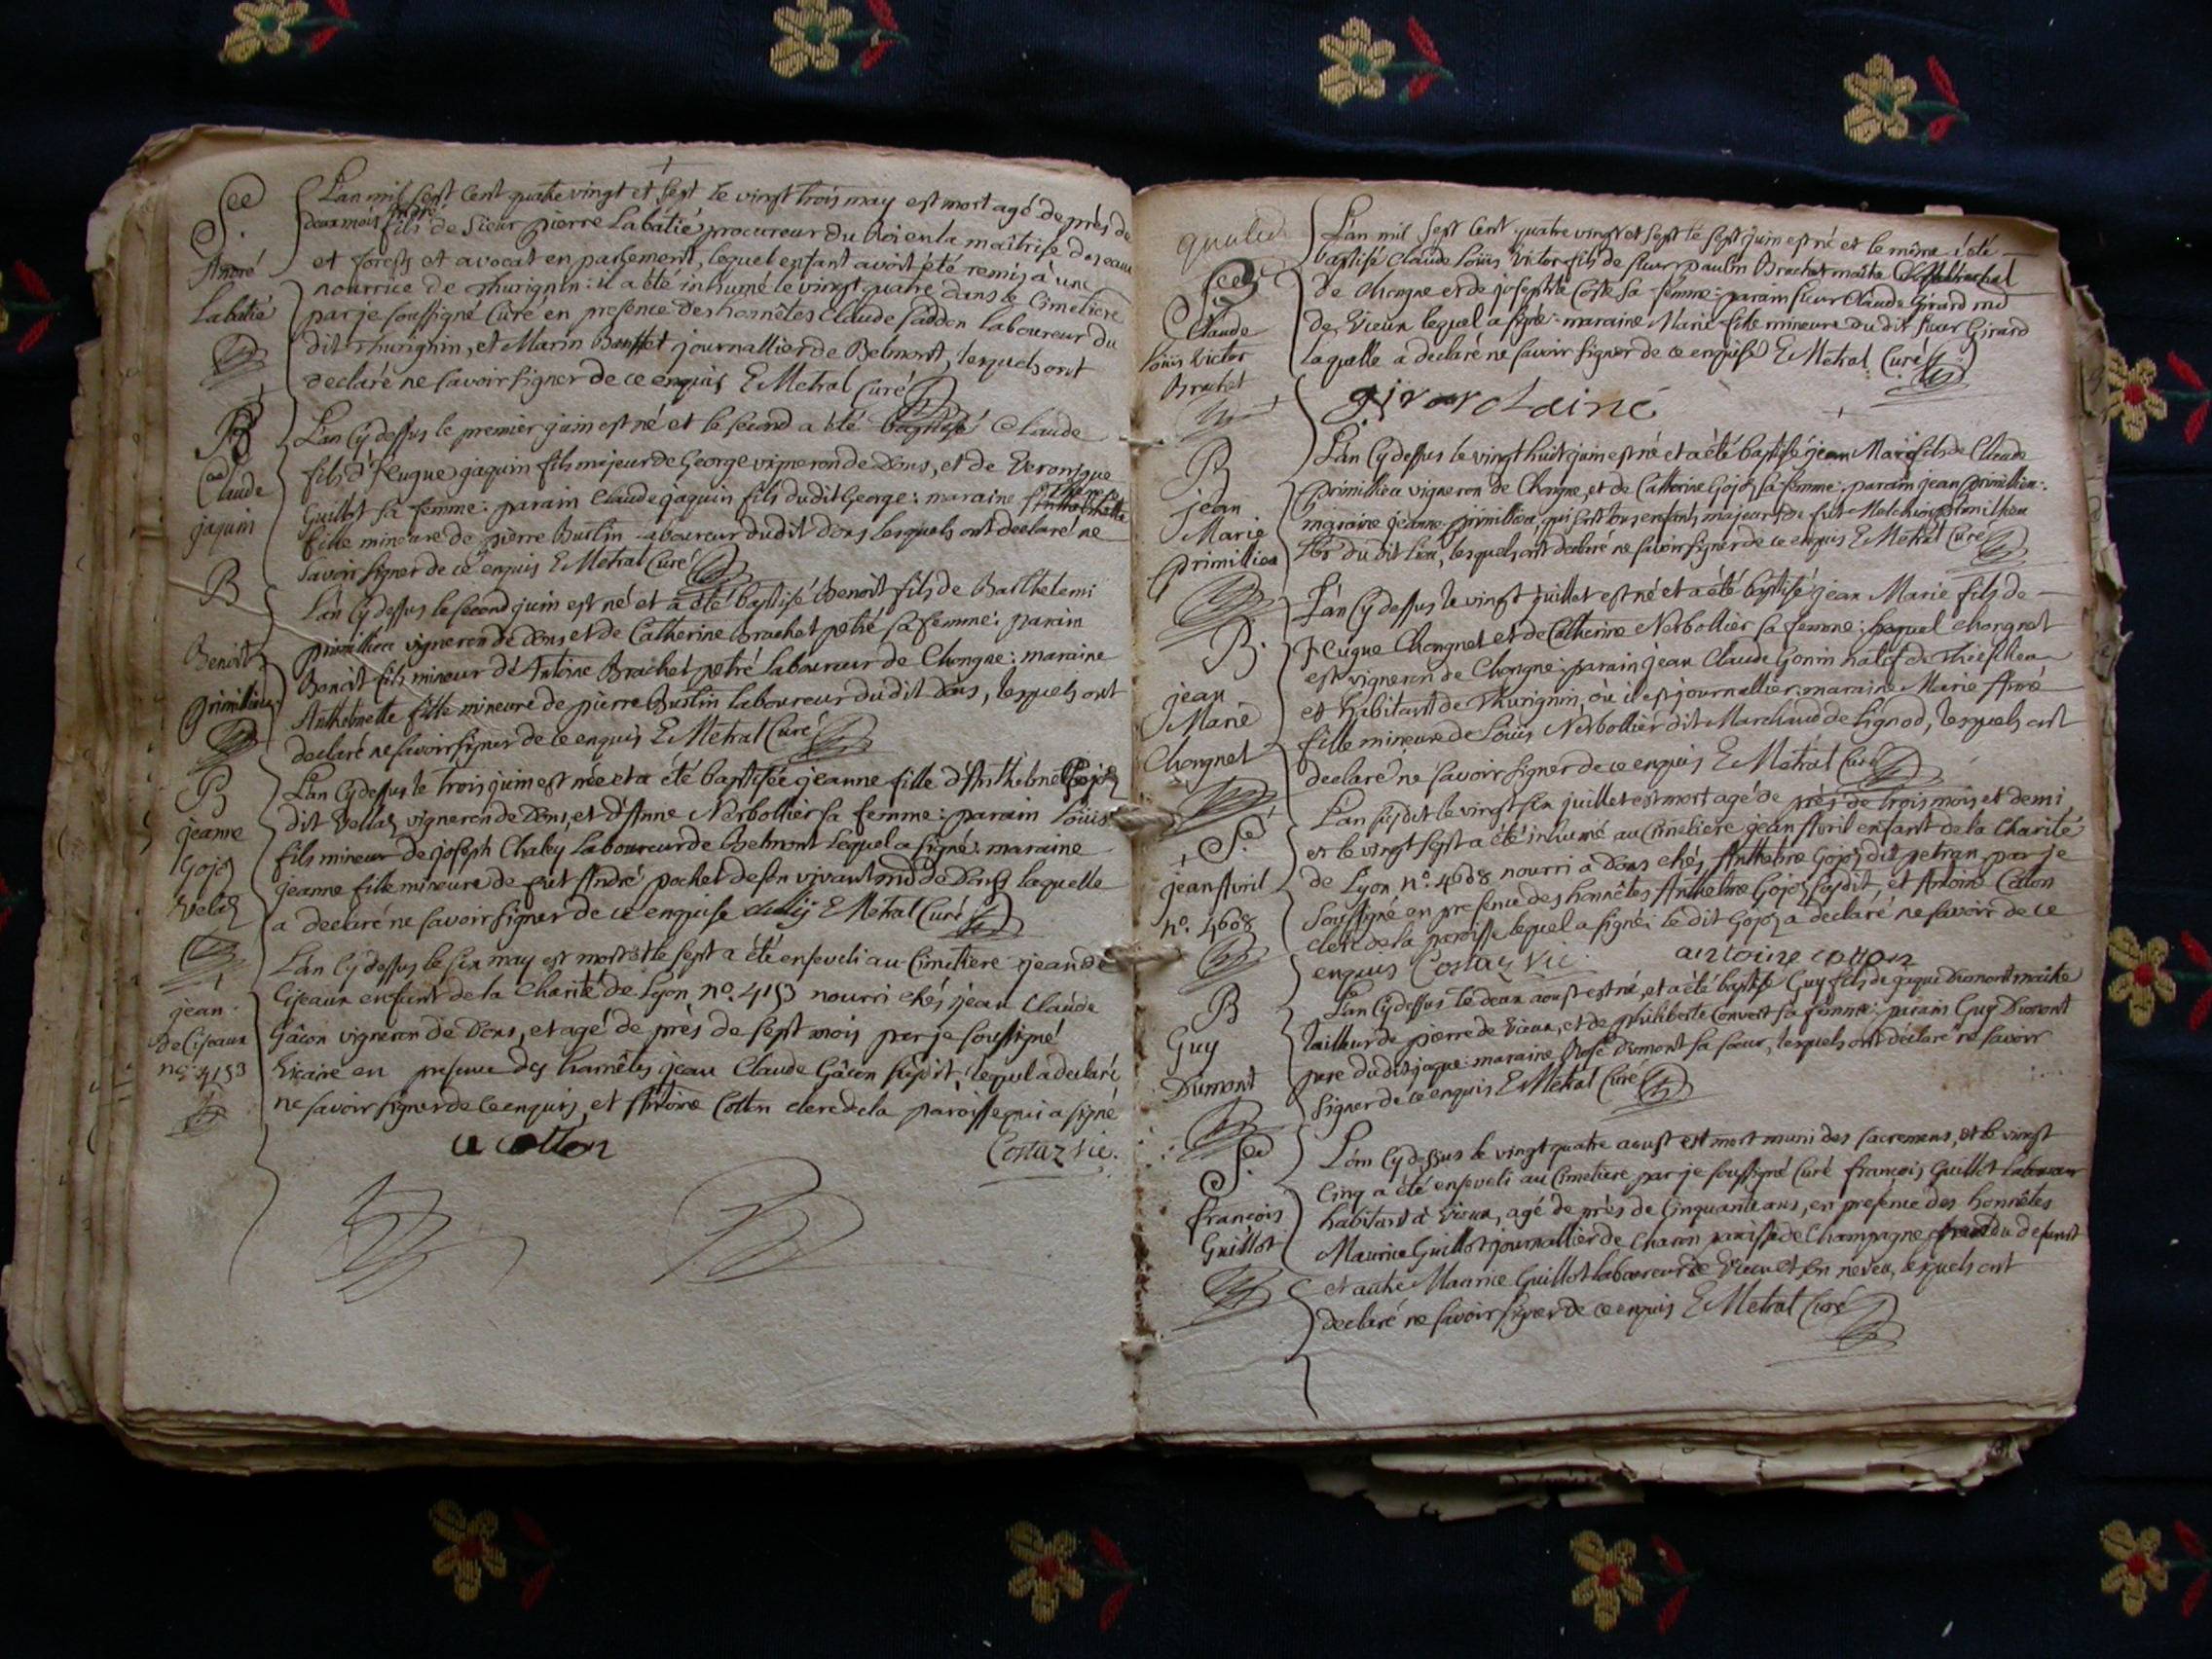 Sre
André
Labatié
L'an mil sept cent quatre vingt et sept le vingt trois may est mort agé de près de
deux mois André fils de sieur pierre Labatié procureur du Roi en la maîtrise des eaux
et forests et avocat en parlement, lequel enfant avoit été remis à une
nourrice de Thurignin: il a été inhumé le vingt quatre dans le Cimetiere
par je soussigné Curé en presence des honnêtes Claude laboureur du
dit Thurignin, et Marin journallier de Belmont, lesquels ont
declaré ne savoir signer de ce enquis E Metral Curé
B
Claude
jaquin
L'an Cy dessus le premier juin est né et le second a été baptisé Claude
fils d'Hugue jaquin fils majeur de George vigneron de Dons, et de Veronique
Guillot sa femme: parain Claude jaquin fils dudit George: maraine
fille mineure de pierre Burlin laboureur dudit dons lesquels ont declaré ne
savoir signer de ce enquis E Metral Curé
B
Benoît
primillieu
L'an Cy dessus le second juin est né et a été baptisé Benoît fils de Barthelemi
primillieu vigneron de Dons et de Catherine Brachet petré sa femme: parain
Benoît fils mineur d'Antoine Brachet petré laboureur de Chongne: maraine
Anthelmette fille mineure de pierre Burlin laboureur dudit dons, lesquels ont
declaré ne savoir signer de ce enquis E Metral Curé
B
jeanne
Gojoz
Vellaz
L'an Cy dessus le trois juin est née et a été baptisée jeanne fille d'Anthelme Gojoz
dit Vellaz vigneron de Dons, et d'Anne Nerbollier sa femme: parain Loüis
fils mineur de joseph Chaley laboureur de Belmont lequel a signé: maraine
jeanne fille mineure de fut André pochet de son vivant md de Dons laquelle
a declaré ne savoir signer de ce enquise E Metral Curé
jean
de Ciseaux
no. 4153
L'an Cy dessus le six may est mort et le sept a été enseveli au Cimetiere jean de
Ciseaux enfant de la Charité de Lyon no. 4153 nourri chés jean Claude
Gâcon vigneron de Dons, et agé de près de sept mois par je soussigné
Vicaire en presence des honnêtes jean Claude Gâcon susdit, lequel a declaré
ne savoir signer de ce enquis, et Antoine Cotton clerc de la paroisse qui a signé
a cotton Costaz vic.
B
Claude
Loüis Victor
Brachet
L'an mil sept cent quatre vingt et sept le sept juin est né et le même a été
baptisé Claude Loüis Victor fils de sieur paulin Brachet maître
de Chongne et de josephte Coste sa femme: parain sieur Claude Girard md
de Vieux lequel a signé: maraine Marie fille mineure du dit sieur Girard
laquelle a declaré ne savoir signer de ce enquise E Metral Curé
girard ainé
B
jean
Marie
primillieu
L'an Cy dessus le vingt huit juin est né et a été baptisé jean Marie fils de Claude
primillieu vigneron de Chongne, et de Catherine Gojoz sa femme: parain jean primillieu:
maraine jeanne primillieu, qui sont tous enfants majeurs de fut Melchior primillieu
du dit lieu, lesquels ont declaré ne savoir signer de ce enquis E Metral Curé
B.
jean
Marie
Chongnet
L'an Cy dessus le vingt juillet est né et a été baptisé jean Marie fils de
Hugue Chongnet et de Catherine Nerbollier sa femme: lequel chongnet
est vigneron de Chongne: parain jean Claude Gonin natif de
et habitant de Thurignin, où il est journallier: maraine Marie Aimé
fille mineure de Loüis Nerbollier dit Marchand de Lignod, lesquels ont
declaré ne savoir signer de ce enquis E Metral Curé
Sre
jean Avril
no. 4608
L'an susdit le vingt six juillet est mort agé de près de trois mois et demi,
et le vingt sept a été inhumé au Cimetiere jean Avril enfant de la Charité
de Lyon no. 4608 nourri à Dons chés Anthelme Gojoz dit petran par je
soussigné en presence des honnêtes Anthelme Gojoz susdit, et Antoine Coton
clerc de la paroisse lequel a signé: le dit Gojoz a declaré ne savoir de ce
enquis Costaz Vic antoine cotton
B
Guy
Dumont
L'an Cy dessus le deux aoust est né, et a été baptisé Guy fils de jaque Dumont maître
tailleur de pierre de Vieux, et de philiberte Convert sa femme: parain Guy Dumont
pere du dit jaque: maraine Rose Dumont sa soeur, lesquels ont declaré ne savoir
signer de ce enquis E Metral Curé
Sre
françois
Guillot
L'an Cy dessus le vingt quatre aoust est mort muni des sacremens, et le vingt
Cinq a été enseveli au Cimetiere par je soussigné Curé françois Guillot laboureur
habitant à Vieux, agé de près de Cinquante ans, en presence des honnêtes
Maurice Guillot journallier de Charon paroisse de Champagne, du defunt
et autre Maurice Guillot laboureur de Vieux et son neveu, lesquels ont
declaré ne savoir signer de ce enquis E Metral Curé